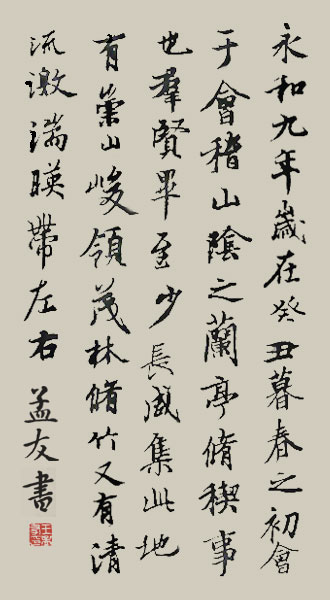 永和九年歲在癸丑暮春之初會
于會稽山陰之蘭亭脩稧事
也羣賢畢至少長咸集此地
有崇山峻領茂林脩竹又有清
流激湍暎帶左右孟友書